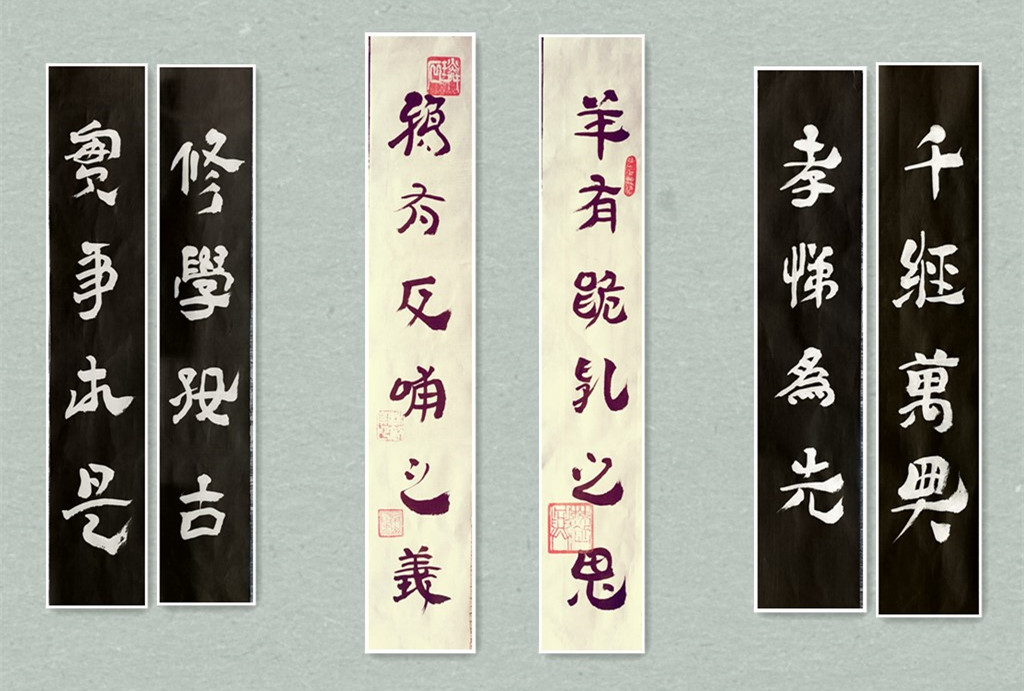 千經萬典
孝悌為先
羊有跪乳之恩
鴉有反哺之義
修學好古
實事求是